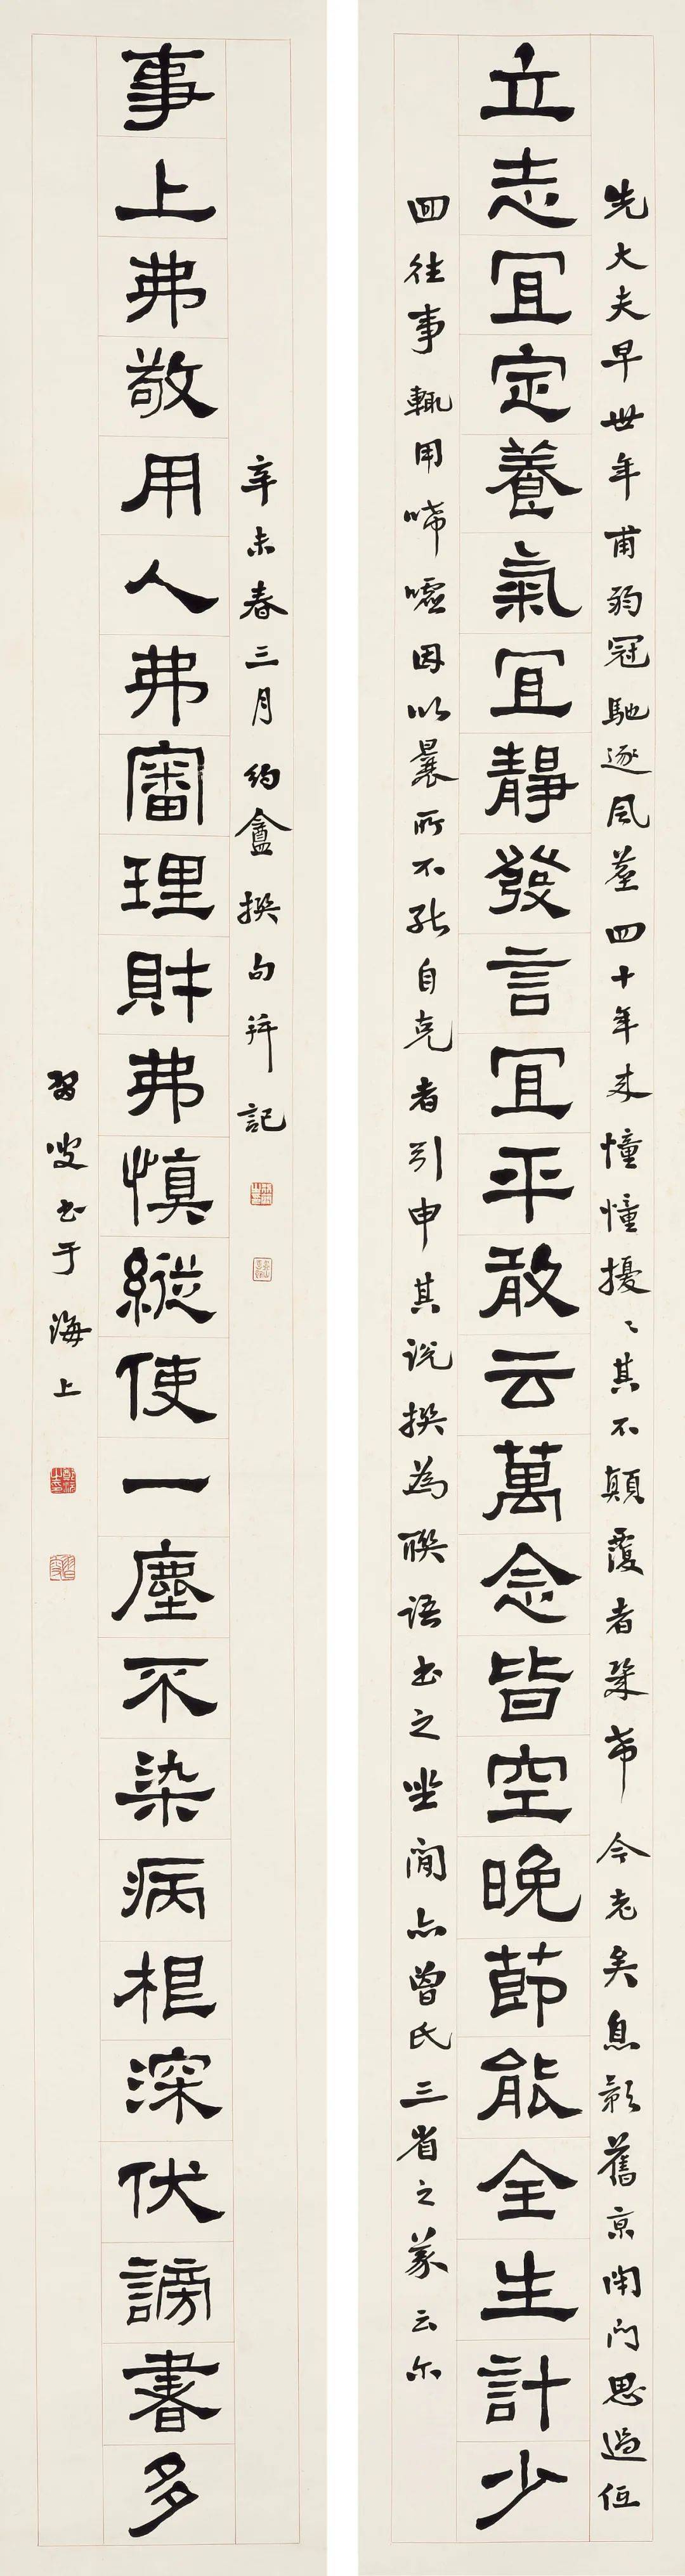 先大夫早世年甫弱冠馳逐風塵四十年來憧憧擾〻其不顛覆者幾希今老矣息影舊京閉門思過偶
立志冝定養氣冝靜發言冝平敢云萬念皆空晚節能全生計少
回往事輒用唏噓因以曩所不能自克者引申其說撰為聯語書之坐間亦曾氏三省之義云尔
辛未春三月約盦撰句并記
事上弗敬用人弗審理財弗慎縱使一塵不染病根深伏謗書多
習叟書于海上